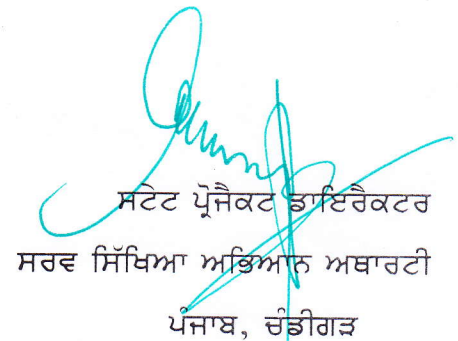 ਸਟੇਟ ਪ੍ਰੋਜੈਕਟ ਡਾਇਰੈਕਟਰ
ਸਰਵ ਸਿੱਖਿਆ ਅਭਿਆਨ ਅਥਾਰਟੀ
ਪੰਜਾਬ, ਚੰਡੀਗੜ